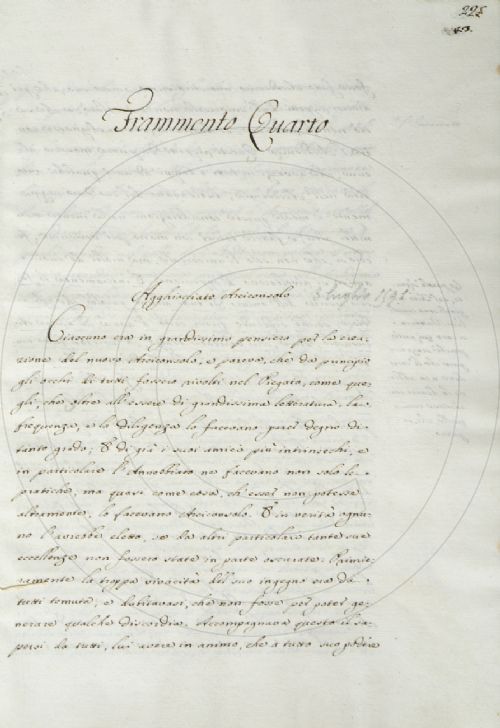 225
43.
Frammento Quarto
Agghiacciato Arciconsolo
Ciascuno era in grandissimo pensiero per la crea-
zione del nuovo Arciconsolo, e pareva, che da principio
gli occhi di tutti fossero rivolti nel Pregato, come que-
gli, che oltre all'essere di grandissima letteratura, la
frequenza, e la diligenza lo facevano parer degno di
tanto grado; E di già i suoi amici più intrinsechi, e
in particolare l'Annebbiato ne facevano non solo le
pratiche, ma quasi come cosa, ch'esser non potesse
altramente, lo facevano Arciconsolo. E in verità ognu-
no l'avrebbe eletto, se da altri particolari tante sue
eccellenze non fossero state in parte oscurate. Primie-
ramente la troppa vivacità del suo ingegno era da
tutti temuta, e dubitavasi, che non fosse per poter ge-
nerare qualche discordia. Accompagnava questo il sa-
persi da tutti, lui avere in animo, che a tutto suo potere